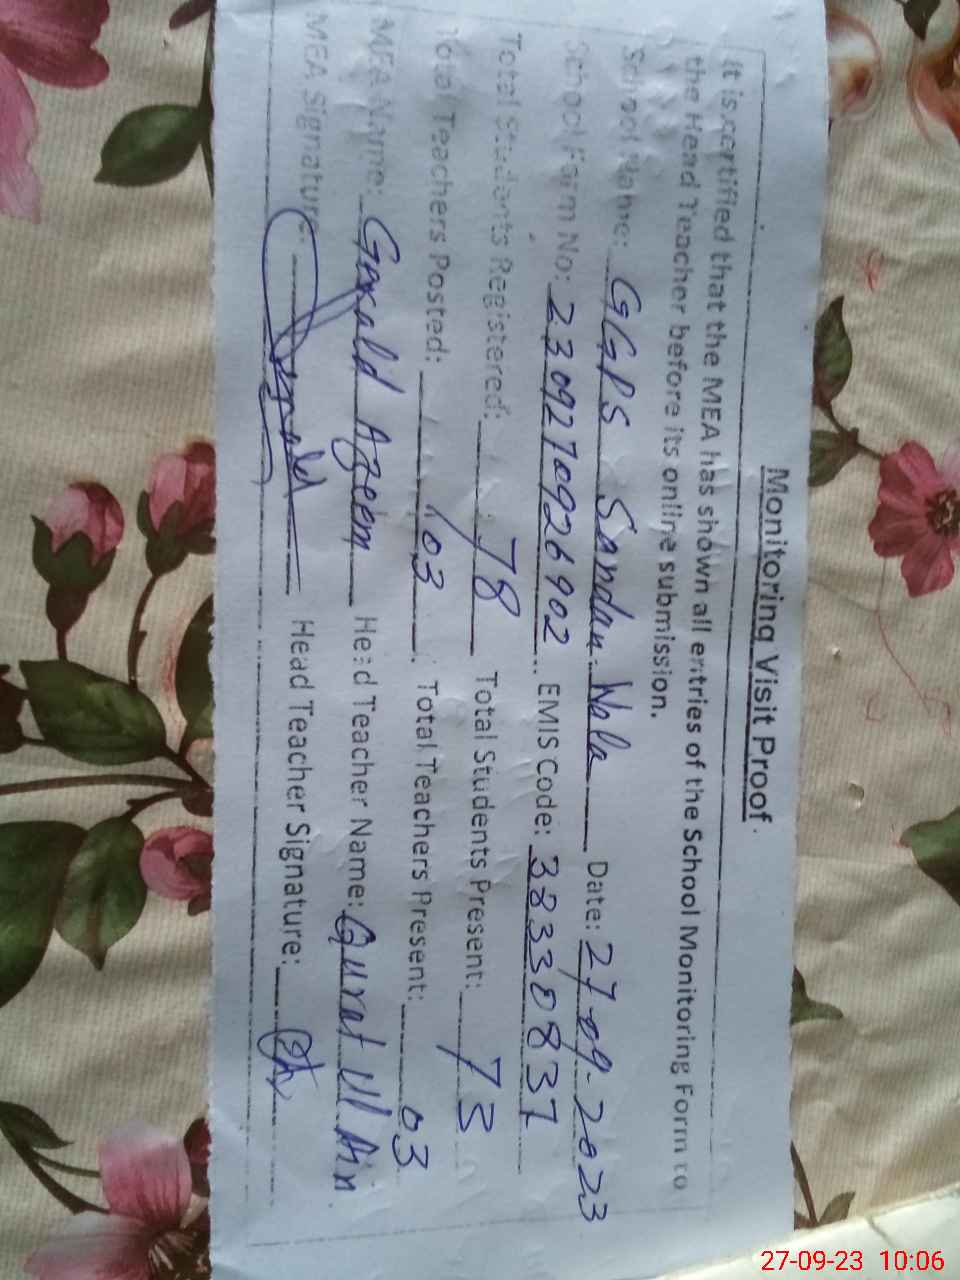 Monitoring Visit Proof.
It is certified that the MEA has shown all entries of the School Monitoring Form to
the Head Teacher before its online submission.
School Name: GGPS Sandau Wala Date: 27-09-2023
School Form No: 2309270926902 EMIS Code: 38330837
Total Students Registered: 78 Total Students Present: 73
Total Teachers Posted: 03 Total Teachers Present: 03
MEA Name: Gerald Azeem Head Teacher Name: Qurat Ul Ain
MEA Signature: Head Teacher Signature:
27-09-23 10:06